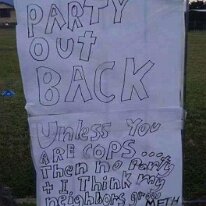 PARTY
Out
BACK
Unless You
ARE COPS....
Then no Party
+ I Think my
neighbors got
METH